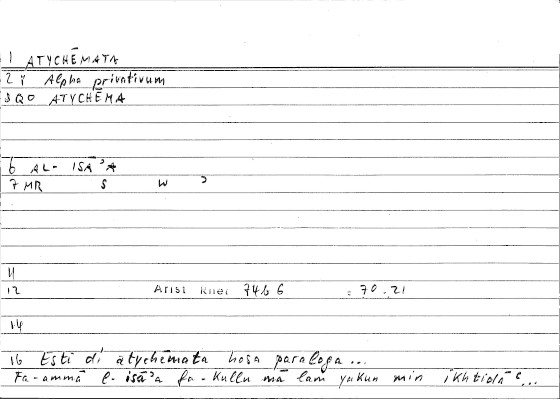 1 ATYCHĒMATA
2 Y Alpha privativum
3 QO ATYCHĒMA
6 AL- ISĀʾA
7 MR S W ʾ
11
12 Arist Rhet 74b6 : 70.21
14
16 Esti di atychēmata hosa paraloga...
Fa-ammā l-isāʾa fa-kullu mā lam yakun min ikhtidāʿ...